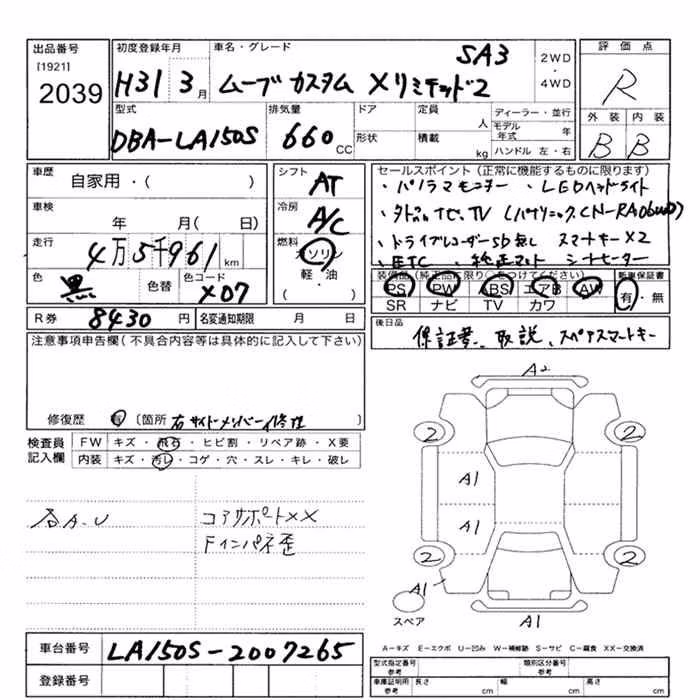 出品番号
[1921]
2039
初度登録年月
H31 3月
車名・グレード
ムーブ カスタム Xリミテッド2
SA3
2WD
・
4WD
評価点
R
外装 内装
B B
型式
DBA-LA150S
排気量
660 CC
ドア
形状
定員
人
積載
kg
ディーラー・並行
モデル年式 年
ハンドル 左・右
車歴
自家用・( )
車検
年 月( 日)
走行
4万5千961 km
色
黒
色替
色コード
X07
シフト
AT
冷房
A/C
燃料
ガソリン
軽・油
( )
セールスポイント(正常に機能するものに限ります)
・パノラマモニター ・LEDヘッドライト
・ナビ、TV (パナソニック CN-RA06WD)
・ドライブレコーダー SD無し スマートキーX2
・ETC ・純正マット
装備品(純正品に限り○をつけてください)
PS PW ABS エアB AW
SR ナビ TV カワ
新車保証書
有・無
R券 8430 円
名変通知期限 月 日
後日品
保証書、取説、スペアスマートキー
注意事項申告欄(不具合内容等は具体的に記入して下さい)
修復歴 有 〔箇所 右サイドメンバー修正 〕
検査員
記入欄
FW キズ・飛石・ヒビ割・リペア跡・X要
内装 キズ・汚レ・コゲ・穴・スレ・キレ・破レ
各A.U
コアサポートXX
Fインパネ歪
A2
2 2
A1
A1
2 2
A1
A1
スペア
車台番号 LA150S-2007265
登録番号
A=キズ E=エクボ U=凹み W=補修跡 S=サビ C=腐食 XX=交換済
型式指定番号
参考
類別区分番号
参考
車庫証明用
参考
長さ cm
幅 cm
高さ cm